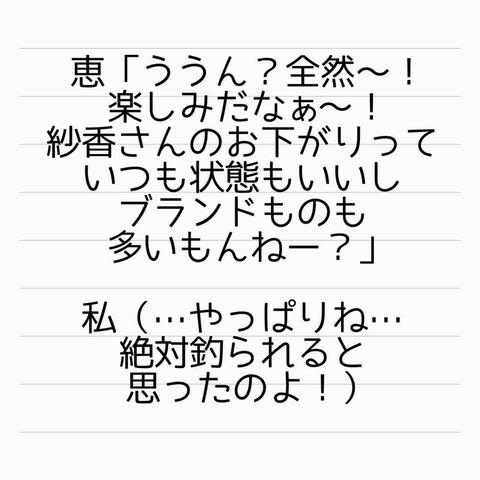 恵「ううん？全然〜！
楽しみだなぁ〜！
紗香さんのお下がりって
いつも状態もいいし
ブランドものも
多いもんねー？」
私（…やっぱりね…
絶対釣られると
思ったのよ！）